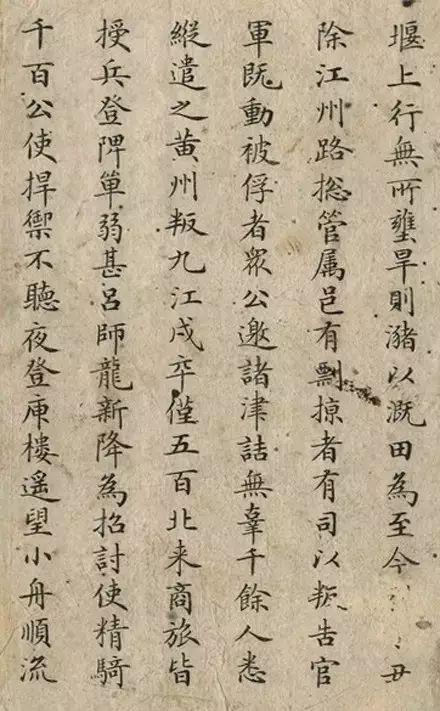 堰上行無所壅旱則瀦以溉田為至今丑
除江州路揔管属邑有剽掠者有司以叛告官
軍既動被俘者眾公邀諸津詰無辜千餘人悉
縱遣之黄州叛九江戍卒僅五百北来商旅皆
授兵登陴單弱甚呂師龍新降為招討使精騎
千百公使捍禦不聽夜登庾樓遥望小舟順流